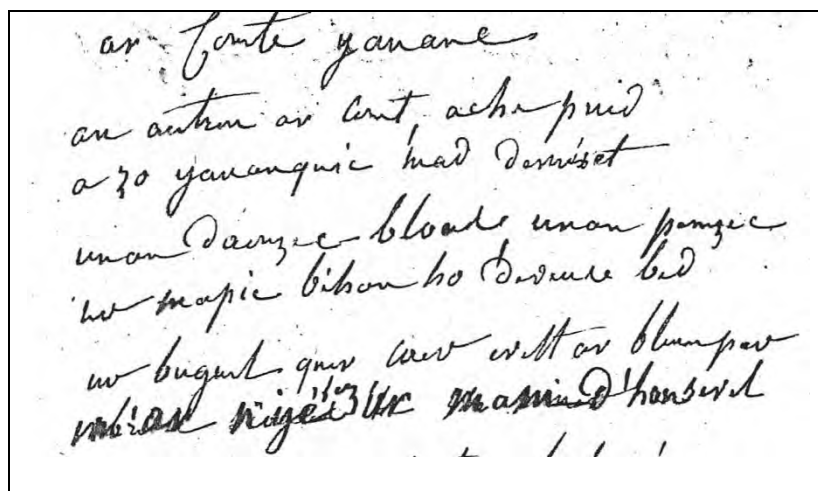 ar Comte yaouanc
an autrou ar Cont, ac he pried
a zo yaouanquic mad demizet
unan daouzec bloads unan pemzec
ur mapic bihan ho deveuse bed
ur buguel quer caer evell ar bleun per
ur mamied'hansevel